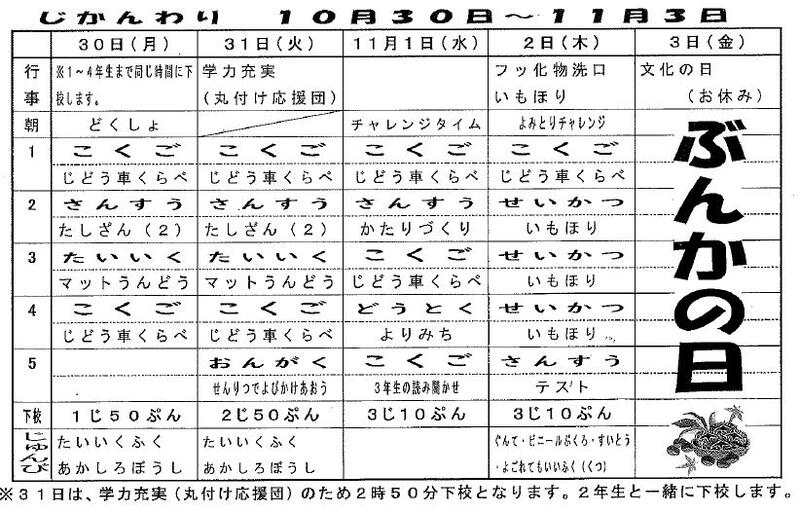 じかんわり　１０月３０日～１１月３日
３０日（月）　３１日（火）　１１月１日（水）　２日（木）　３日（金）
行事　※１～４年生まで同じ時間に下校します。　学力充実（丸付け応援団）　フッ化物洗口　いもほり　文化の日（お休み）
朝　どくしょ　チャレンジタイム　よみとりチャレンジ
１　こくご　こくご　こくご　こくご
じどう車くらべ　じどう車くらべ　じどう車くらべ　じどう車くらべ
２　さんすう　さんすう　さんすう　せいかつ
たしざん（２）　たしざん（２）　かたりづくり　いもほり
３　たいいく　たいいく　こくご　せいかつ
マットうんどう　マットうんどう　じどう車くらべ　いもほり
４　こくご　こくご　どうとく　せいかつ
じどう車くらべ　じどう車くらべ　よりみち　いもほり
５　おんがく　こくご　さんすう
せんりつでよびかけあおう　３年生の読み聞かせ　テスト
ぶんかの日
下校　１じ５０ぷん　２じ５０ぷん　３じ１０ぷん　３じ１０ぷん
じゅんび　たいいくふく　たいいくふく　ぐんて・ビニールぶくろ・すいとう
あかしろぼうし　あかしろぼうし　・よごれてもいいふく（くつ）
※３１日は、学力充実（丸付け応援団）のため２時５０分下校となります。２年生と一緒に下校します。